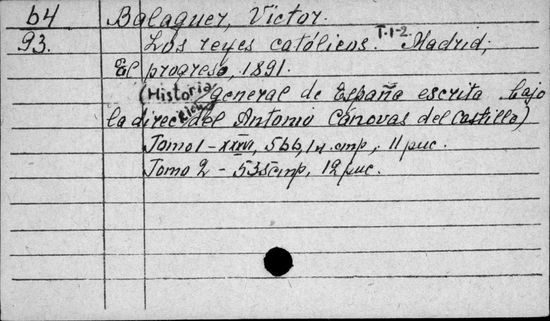 64 Balaguer, Víctor.
93. Los reyes católicos. T.1-2. Madrid;
El progreso, 1891.
(Historia general de España escrita bajo
la dirección del Antonio Cánovas del Castillo)
Tomo 1 - XXXVI, 566, 1 н. стр, 11 рис.
Tomo 2 - 535 стр, 12 рис.